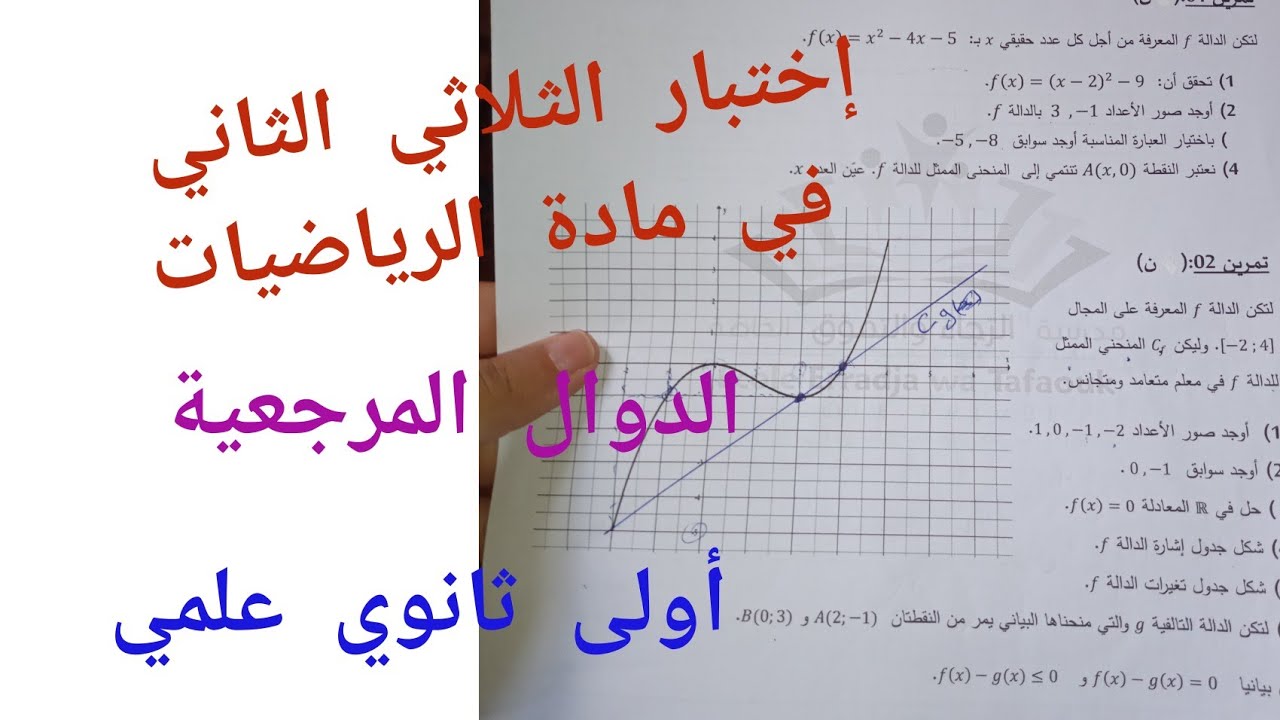 إختبار الثلاثي الثاني
في مادة الرياضيات
الدوال المرجعية
أولى ثانوي علمي
لتكن الدالة f المعرفة من أجل كل عدد حقيقي x بـ: f(x) = x² − 4x − 5.
1) تحقق أن: f(x) = (x − 2)² − 9.
2) أوجد صور الأعداد 3 , −1 بالدالة f.
) باختيار العبارة المناسبة أوجد سوابق −5, −8.
4) نعتبر النقطة A(x, 0) تنتمي إلى المنحنى الممثل للدالة f. عيّن العدد x.
تمرين 02: ( ن)
لتكن الدالة f المعرفة على المجال
[−2 ; 4]. وليكن C_f المنحني الممثل
للدالة f في معلم متعامد ومتجانس.
1) أوجد صور الأعداد 1, 0, −1, −2.
2) أوجد سوابق 0, −1.
) حل في ℝ المعادلة f(x) = 0.
) شكل جدول إشارة الدالة f.
) شكل جدول تغيرات الدالة f.
) لتكن الدالة التالفية g والتي منحناها البياني يمر من النقطتان A(2; −1) و B(0; 3).
بيانيا f(x) − g(x) = 0 و f(x) − g(x) ≤ 0.